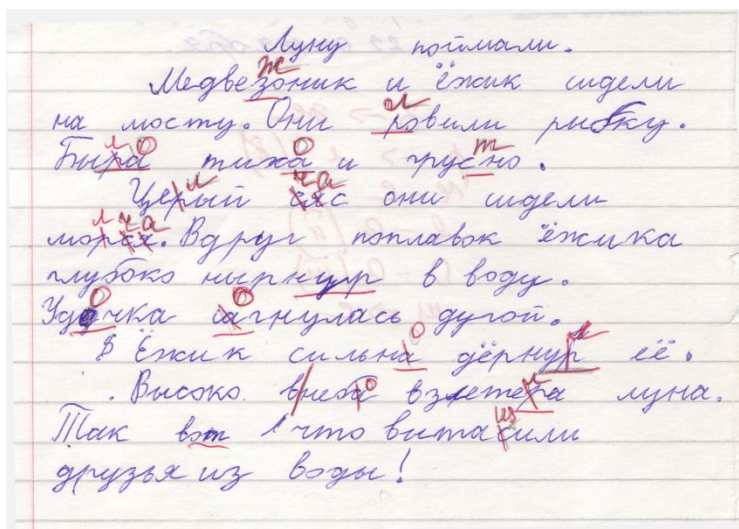 Луну поймали.
Медвезоник и ёжик сидели
на мосту. Они ровили рыбку.
Быра тиха и грусно.
Церый сяс они сидели
морся. Вдруг поплавок ёжика
глубоко нырнур в воду.
Удочка сагнулась дугой.
Ёжик сильна дёрнур её.
Высоко внеба взлетера луна.
Так вот что вытасили
друзья из воды!